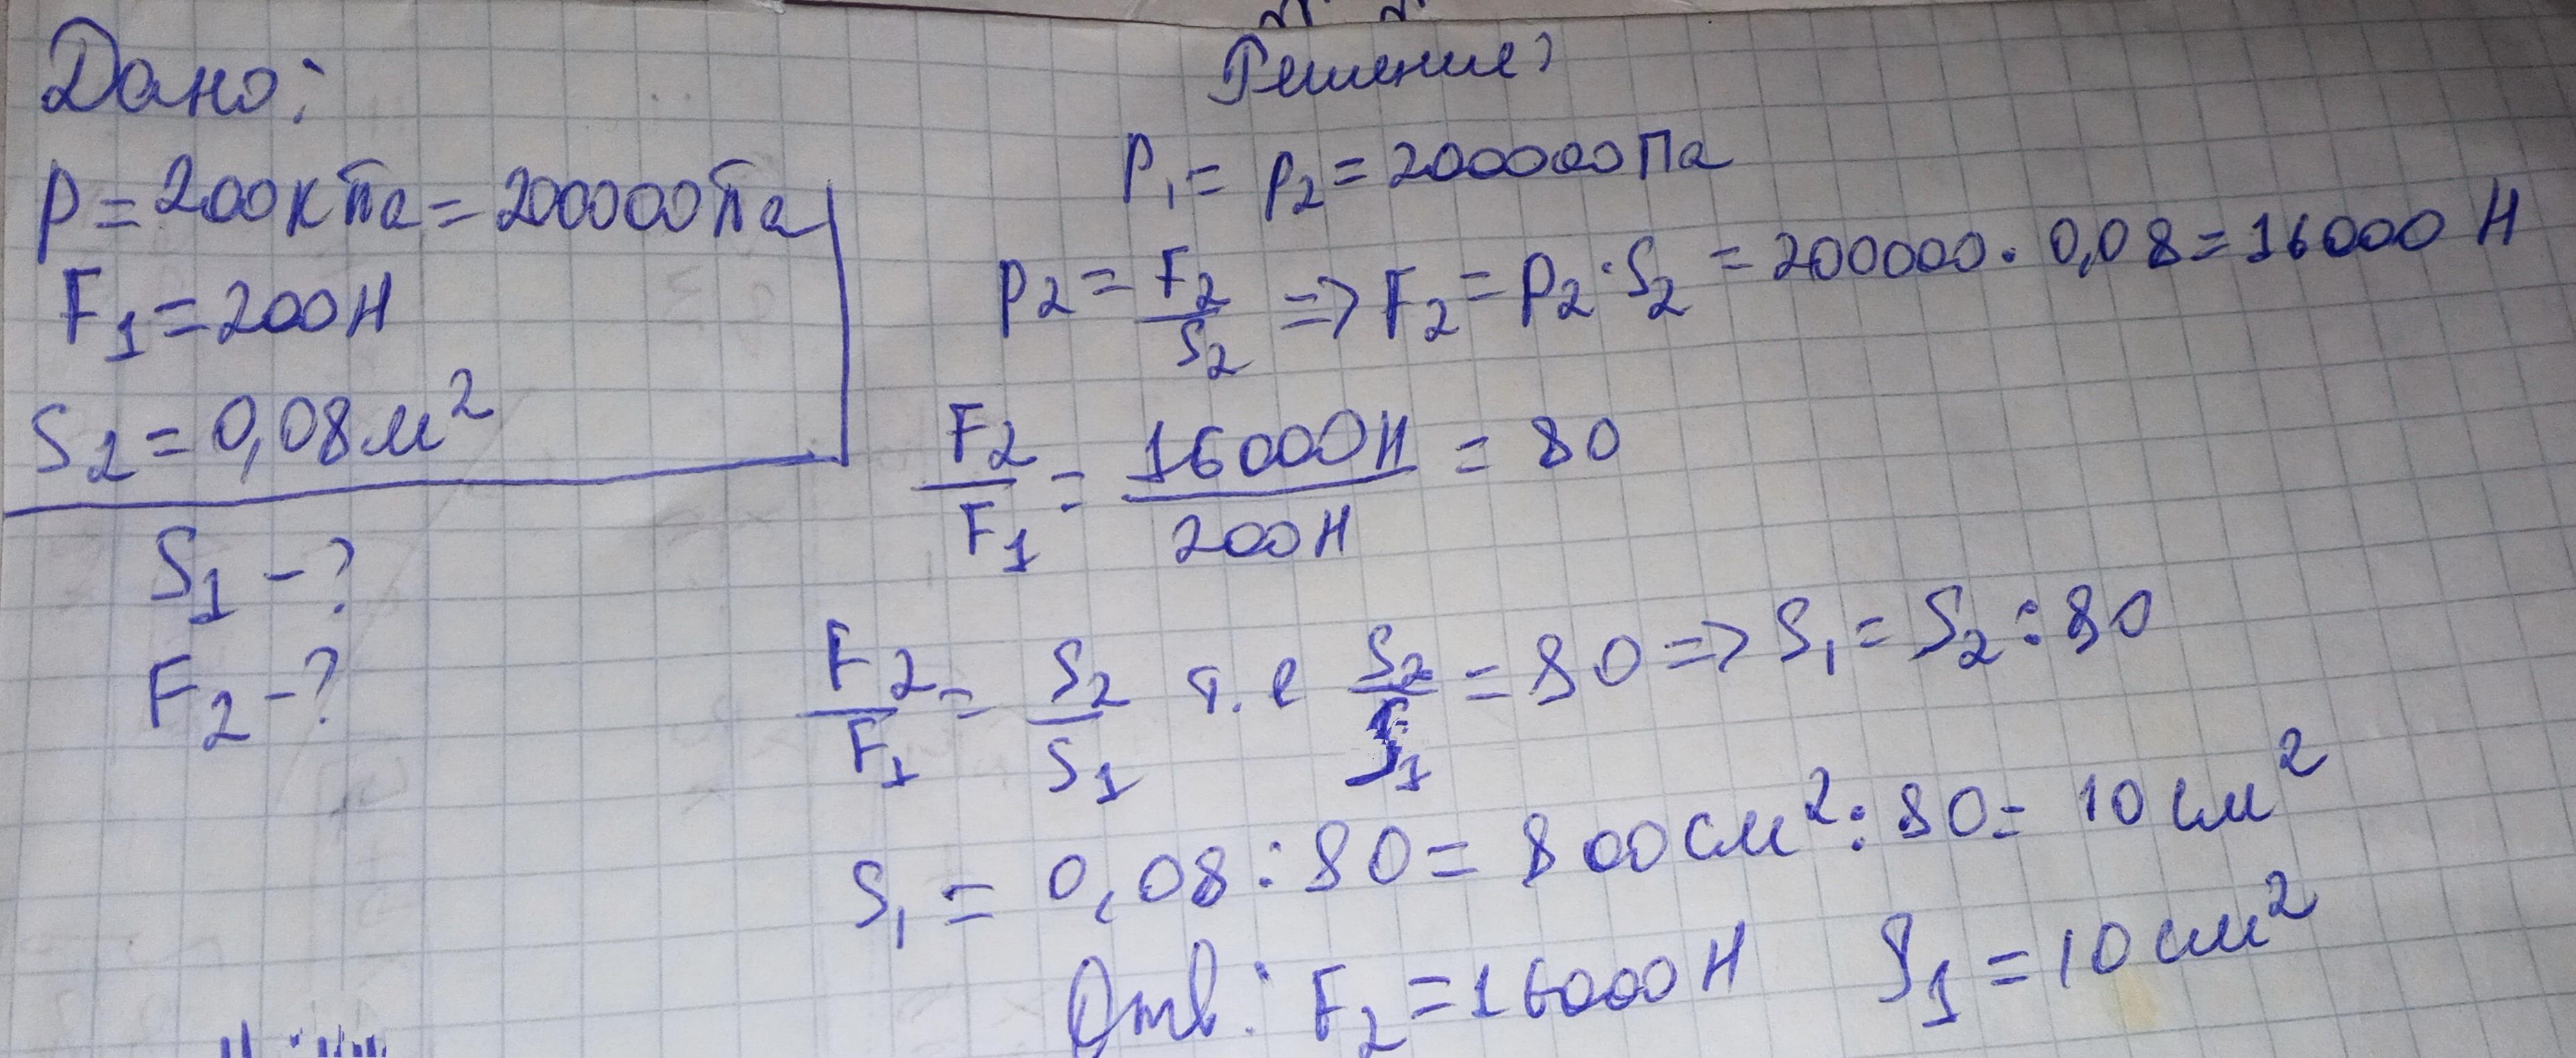 Дано:
P = 200кПа = 200000Па
F₁ = 200Н
S₂ = 0,08м²
S₁ - ?
F₂ - ?
Решение:
P₁ = P₂ = 200000Па
P₂ = F₂/S₂ => F₂ = P₂ · S₂ = 200000 · 0,08 = 16000 Н
F₂/F₁ = 16000Н/200Н = 80
F₂/F₁ = S₂/S₁ т.е S₂/S₁ = 80 => S₁ = S₂ : 80
S₁ = 0,08 : 80 = 800см² : 80 = 10см²
Отв: F₂ = 16000Н S₁ = 10см²